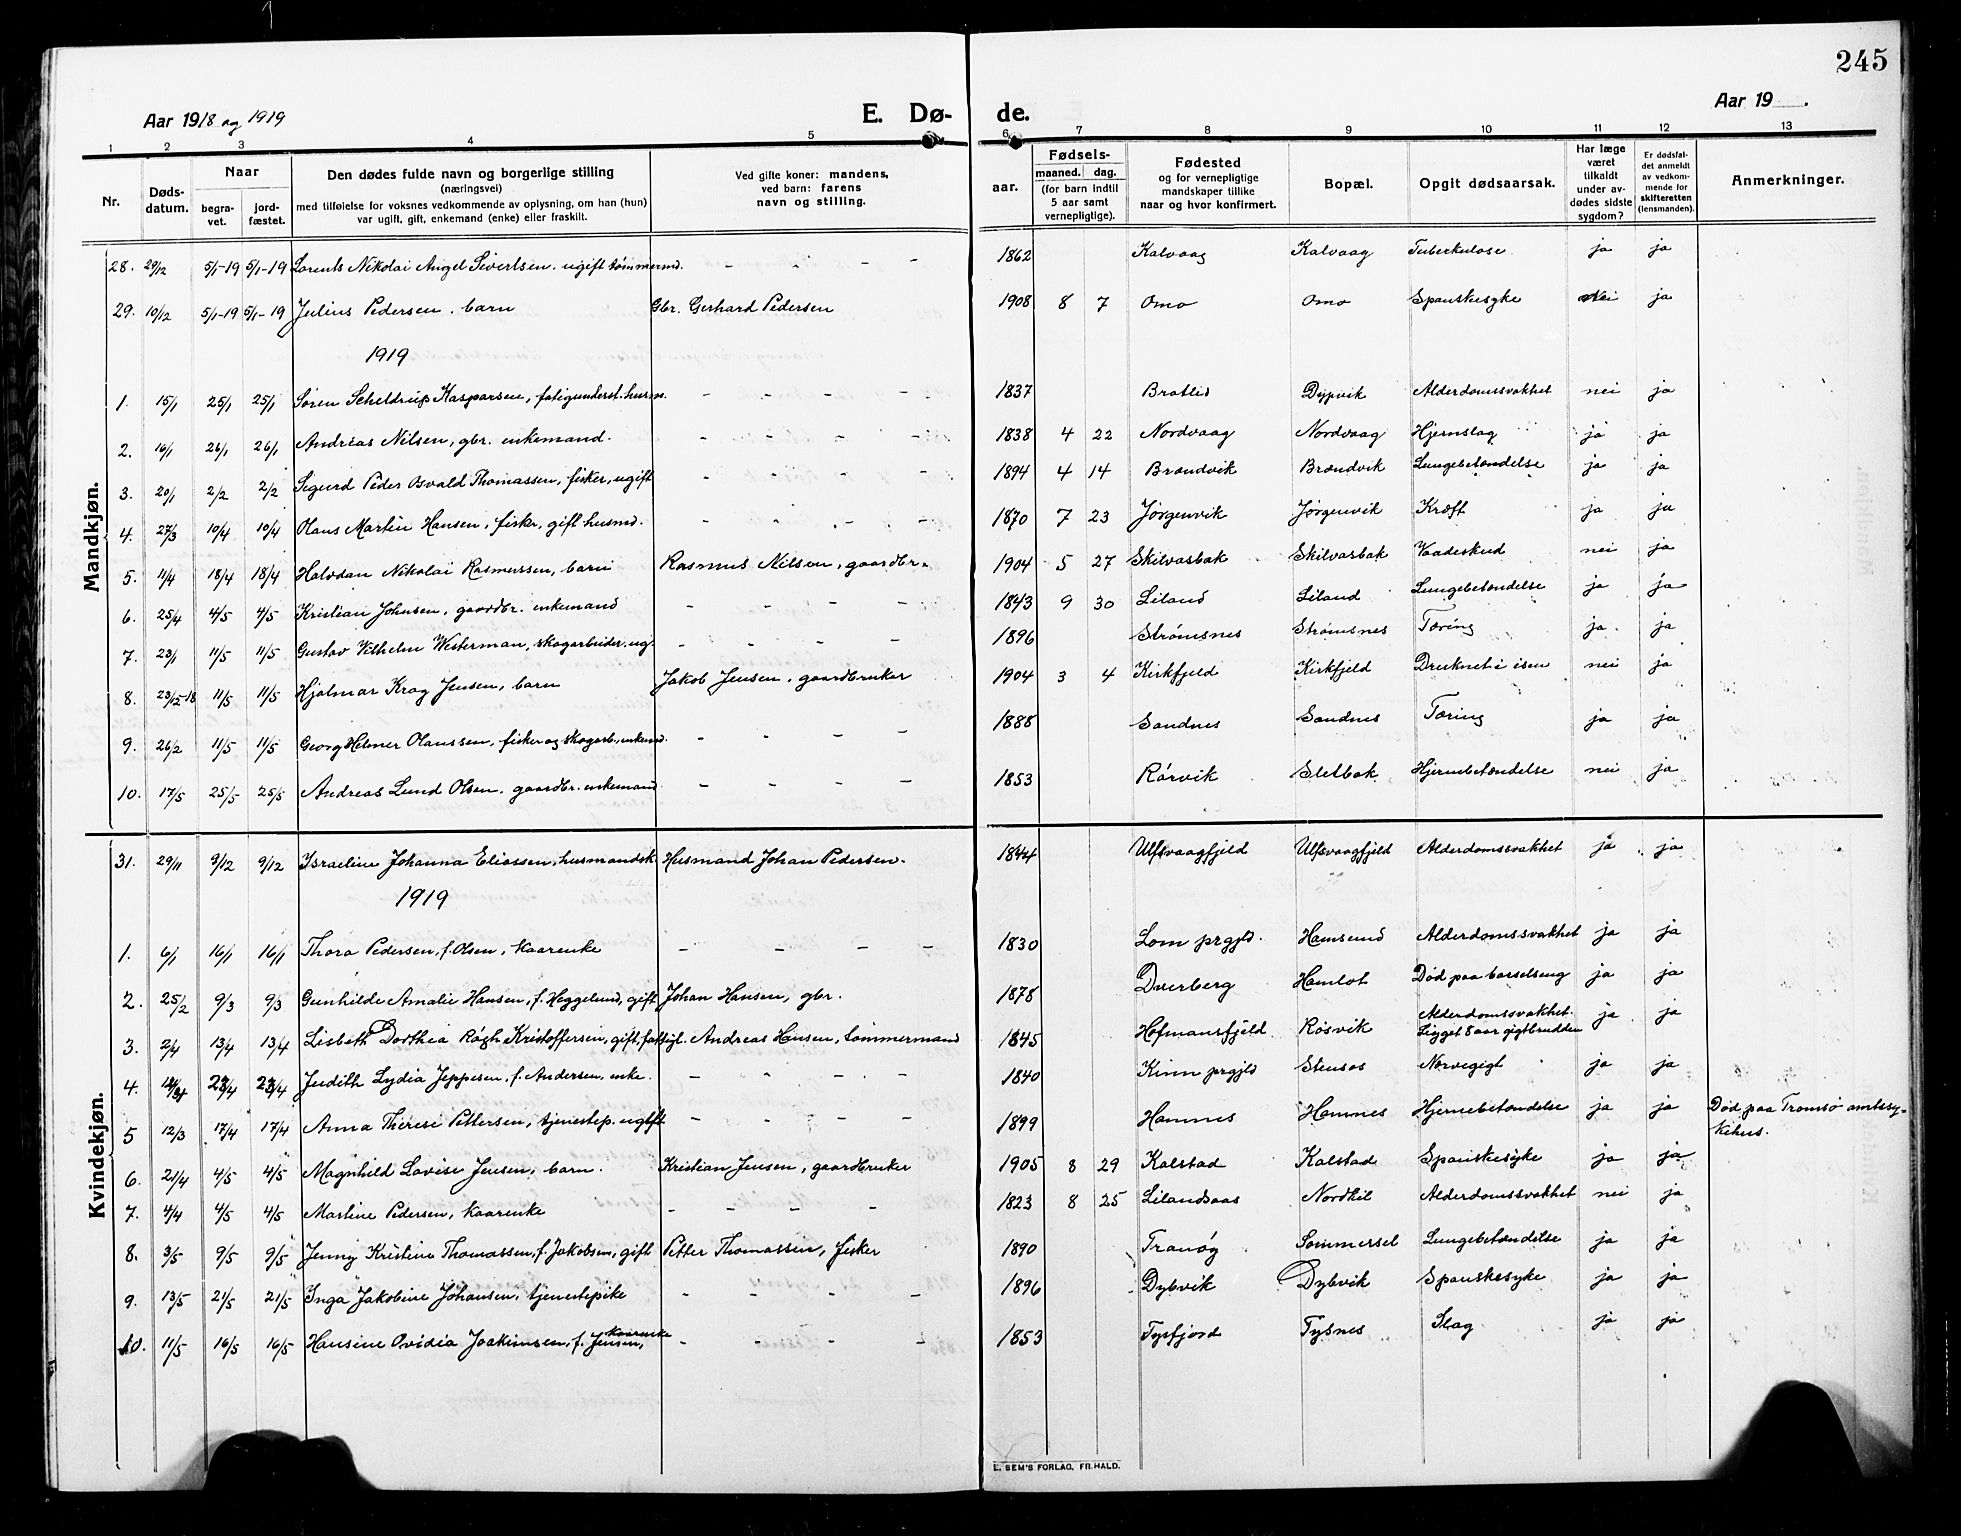 245
Aar 1918 og 1919 E. Dø- de. Aar 19 .
1 2 3 4 5 6 7 8 9 10 11 12 13
Nr.
Døds-datum.
Naar
begra-vet.
jord-fæstet.
Den dødes fulde navn og borgerlige stilling
(næringsvei)
med tilføielse for voksnes vedkommende av oplysning, om han (hun)
var ugift, gift, enkemand (enke) eller fraskilt.
Ved gifte koner: mandens,
ved barn: farens
navn og stilling.
aar.
Fødsels-
maaned. dag.
(for barn indtil
5 aar samt
vernepligtige).
Fødested
og for vernepligtige
mandskaper tillike
naar og hvor konfirmert.
Bopæl.
Opgit dødsaarsak.
Har læge
været
tilkaldt
under av-
dødes sidste
sygdom?
Er dødsfal-
det anmeldt
av vedkom-
mende for
skifteretten
(lensmanden).
Anmerkninger.
Mandkjøn.
28. 29/12 5/1-19 5/1-19 Lorents Nikolai Angel Sivertsen. ugift tømmermd. - - - - 1862 Kalvaag Kalvaag Tuberkulose ja ja
29. 10/12 5/1-19 5/1-19 Julius Pedersen. barn Gbr. Gerhard Pedersen 1908 8 7 Omo Omo Spanskesyke Nei ja
1919
1. 15/1 25/1 25/1 Søren Scheldrup Kasparsen, fatigunderst. husm. - - - - 1837 Bratlid Dypvik Alderdomssvakhet nei ja
2. 16/1 26/1 26/1 Andreas Nilsen, gbr. enkemand. - - - - 1838 4 22 Nordvaag Nordvaag Hjernslag ja ja
3. 20/1 2/2 2/2 Sigurd Peder Osvald Thomassen, fisker, ugift - - - - 1894 4 14 Brændvik Brændvik Lungebetændelse ja ja
4. 27/3 10/4 10/4 Hans Martin Hansen, fisker, gift husmd. - - - - 1870 7 23 Jørgenvik Jørgenvik Kræft ja ja
5. 11/4 18/4 18/4 Halvdan Nikolai Rasmussen, barn Rasmus Nilsen, gaardbr. 1904 5 27 Skilvasbak Skilvasbak Vaadeskud nei ja
6. 25/4 4/5 4/5 Kristian Johnsen, gaardbr. enkemand - - - - 1843 9 30 Liland Liland Lungebetændelse ja ja
7. 23/1 11/5 11/5 Gustav Vilhelm Westerman, skogarbeider, ug. - - - - 1896 Strømsnes Strømsnes Tæring ja ja
8. 23/12-18 11/5 11/5 Hjalmar Krag Jensen, barn Jakob Jensen, gaardbruker 1904 3 4 Kirkfjeld Kirkfjeld Druknet i isen nei ja
9. 26/2 11/5 11/5 Georg Helmer Olaussen, fisker og skogarb., enkemd. - - - - 1888 Sandnes Sandnes Tæring ja ja
10. 17/5 25/5 25/5 Andreas Lund Olsen. gaardbr. enkemand - - - - 1853 Rørvik Sletbak Hjernebetændelse nei ja
Kvindekjøn.
31. 29/11 9/12 9/12 Israeline Johanna Eliassen, husmandsk Husmand Johan Pedersen. 1844 Ulfsvaagfjeld Ulfsvaagfjeld Alderdomssvakhet ja ja
1919
1. 6/1 16/1 16/1 Thora Pedersen, f. Olsen, kaarenke - - - - 1830 Lom prgjld. Hamsund Alderdomssvakhet ja ja
2. 25/2 9/3 9/3 Gunhilde Amalie Hansen, f. Heggelund, gift Johan Hansen, gbr. 1878 Dverberg Hamlot Død paa barselseng ja ja
3. 2/4 13/4 13/4 Lisbeth Dorthea Rågh Kristoffersen, gift, fattigl. Andreas Hansen, tømmermand 1845 Hofmansfjeld Røsvik Alderdomssvakhet. Ligget 8 aar gigtbrudden ja ja
4. 23/4 23/4 Judith Lydia Jeppesen, f. Andersen, enke. - - - - 1840 Kinn prgjld Stensøs Norvegigt ja ja
5 12/3 17/4 17/4 Anna Therese Pettersen, tjenestep. ugift - - - - 1899 Hamnes Hamnes Hjernebetændelse ja ja Død paa Tromsø amtssy-
kehus.
6. 21/4 4/5 4/5 Magnhild Lovise Jensen, barn. Kristian Jensen, gaardbruker 1905 8 29 Kalstad Kalstad Spanskesyke ja ja
7. 4/4 4/5 4/5 Martine Pedersen, kaarenke - - - - 1823 8 25 Lilandsaas Nordkil Alderdomssvakhet nei ja
8. 3/5 9/5 9/5 Jenny Kristine Thomassen, f. Jakobsen, gift Petter Thomassen, fisker 1890 Tranøy Sommersel Lungebetændelse ja ja
9. 13/5 21/5 21/5 Inga Jakobine Johansen, tjenestepike - - - - 1896 Dybvik Dybvik Spanskesyke ja ja
10. 11/5 16/5 16/5 Hansine Ovidia Joakimsen, f. Jensen, kaarenke - - - - 1853 Tysfjord Tysnes Slag ja ja
E. SEM'S FORLAG, FR.HALD.